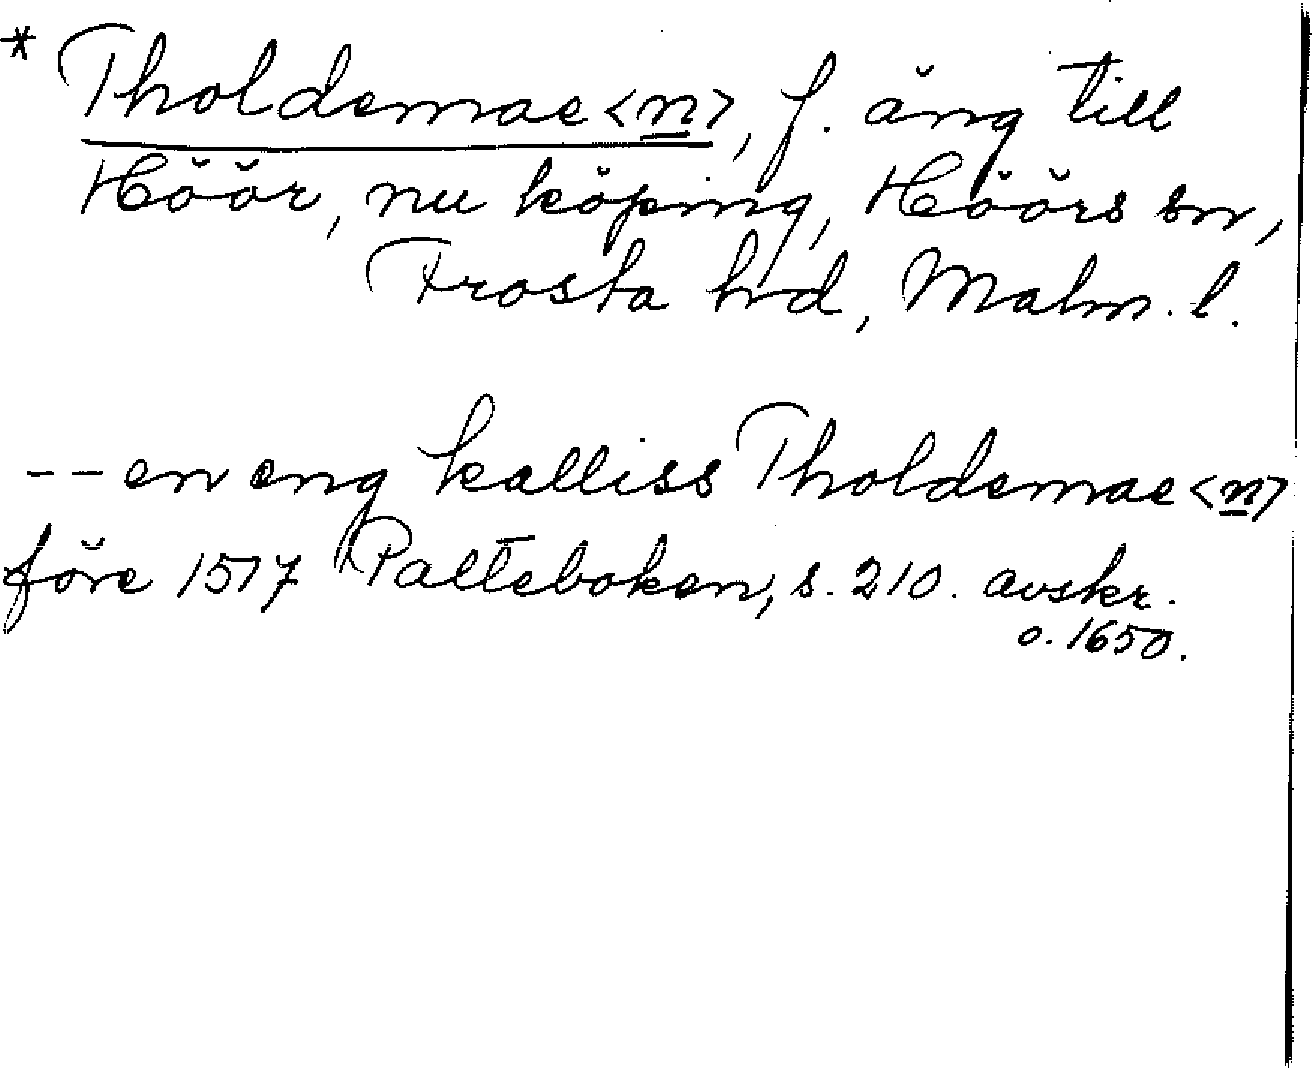 * Tholdemae<n>, f. äng till
Höör, nu köping, Höörs sn,
Frosta hd, Malm. l.
-- en eng kalliss Tholdemae<n>
före 1517 Palteboken, s. 210. avskr.
o. 1650.